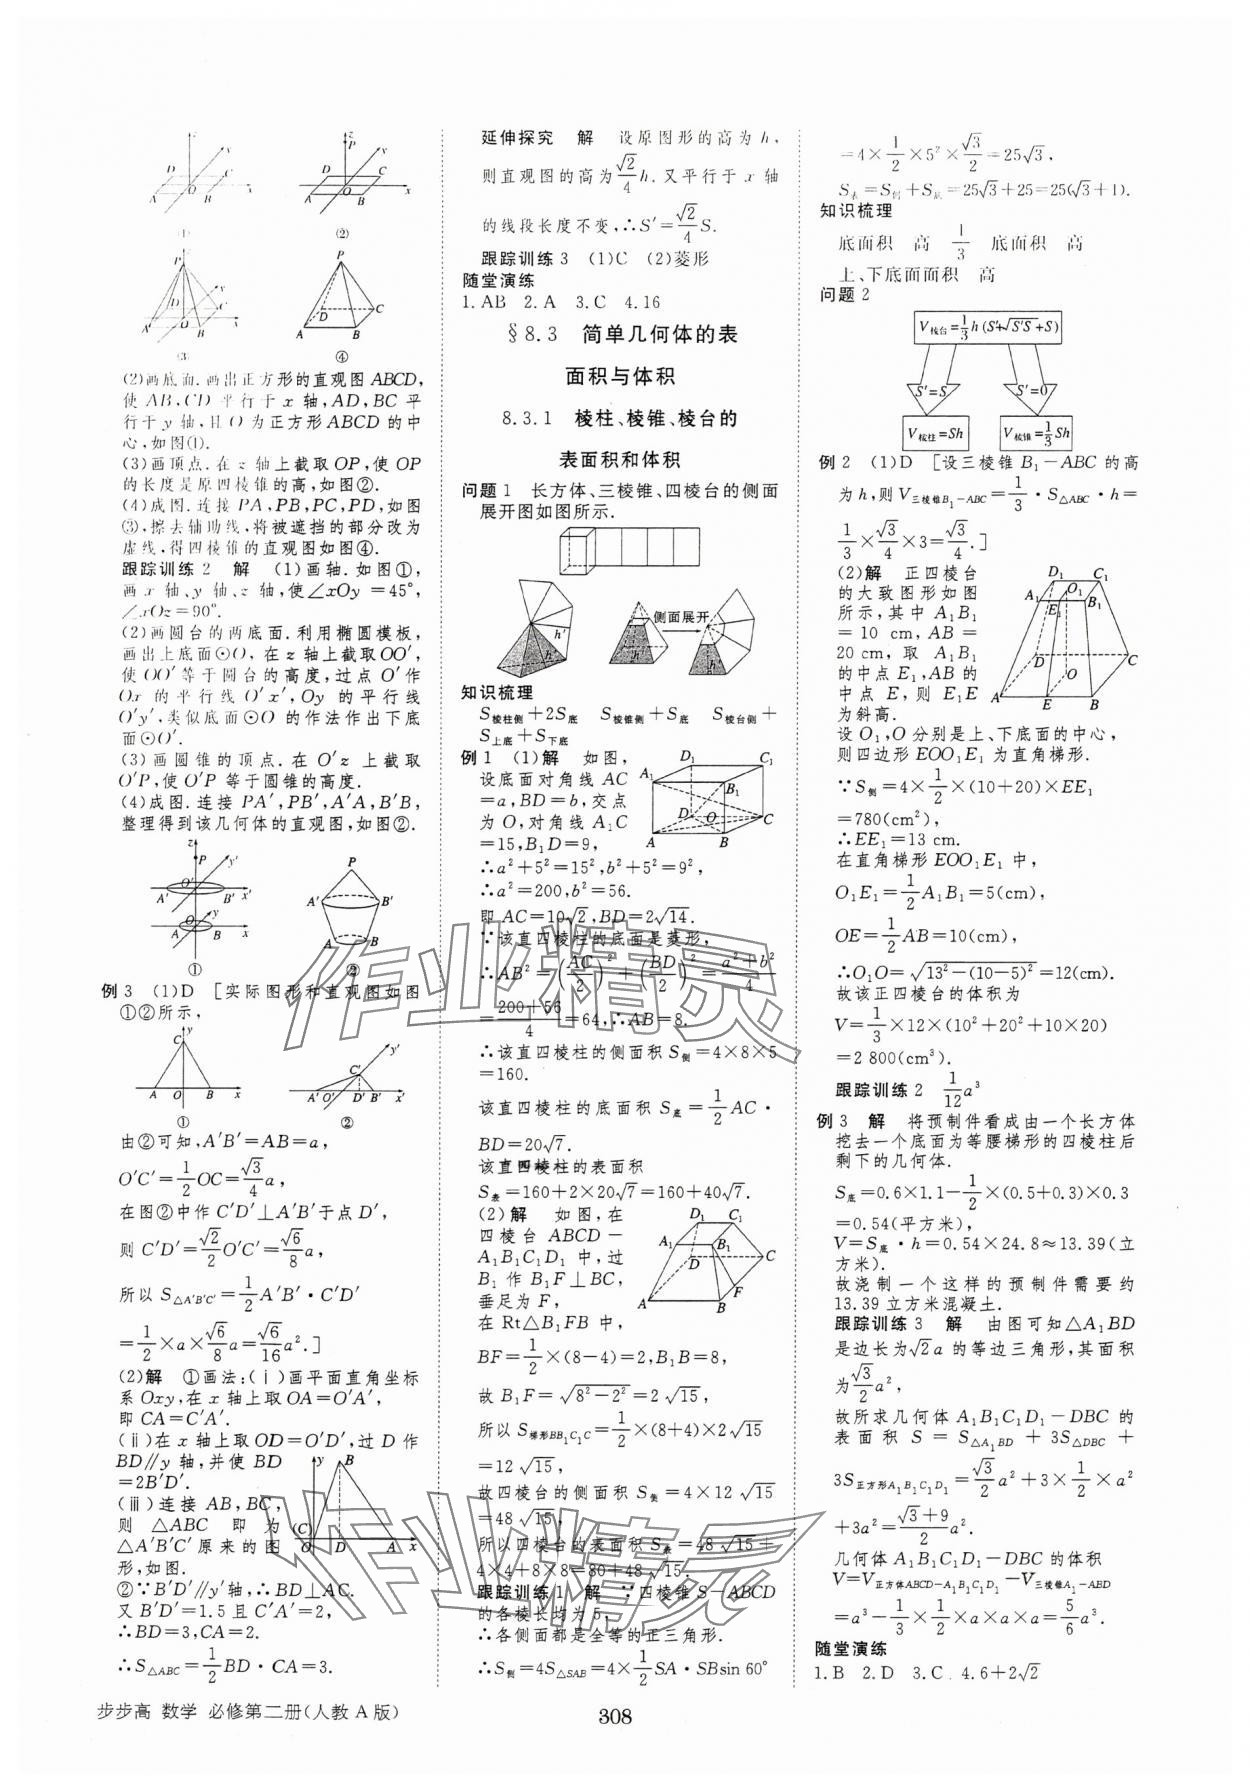 (2)画底面.画出正方形的直观图ABCD,
使AB,CD平行于x轴,AD,BC平
行于y轴,且O为正方形ABCD的中
心,如图①.
(3)画顶点.在z轴上截取OP,使OP
的长度是原四棱锥的高,如图②.
(4)成图.连接PA,PB,PC,PD,如图
③,擦去辅助线,将被遮挡的部分改为
虚线,得四棱锥的直观图如图④.
跟踪训练2 解 (1)画轴.如图①,
画x轴、y轴、z轴,使∠xOy=45°,
∠xOz=90°.
(2)画圆台的两底面.利用椭圆模板,
画出上底面⊙O,在z轴上截取OO′,
使OO′等于圆台的高度,过点O′作
Ox的平行线O′x′,Oy的平行线
O′y′,类似底面⊙O的作法作出下底
面⊙O′.
(3)画圆锥的顶点.在O′z上截取
O′P,使O′P等于圆锥的高度.
(4)成图.连接PA′,PB′,A′A,B′B,
整理得到该几何体的直观图,如图②.
例3 (1)D [实际图形和直观图如图
①②所示,
由②可知,A′B′=AB=a,
O′C′=1/2 OC=√3/4 a,
在图②中作C′D′⊥A′B′于点D′,
则C′D′=√2/2 O′C′=√6/8 a,
所以S△A′B′C′=1/2 A′B′·C′D′
=1/2×a×√6/8 a=√6/16 a².]
(2)解 ①画法:(ⅰ)画平面直角坐标
系Oxy,在x轴上取OA=O′A′,
即CA=C′A′.
(ⅱ)在x轴上取OD=O′D′,过D作
BD∥y轴,并使BD
=2B′D′.
(ⅲ)连接AB,BC,
则△ABC即为
△A′B′C′原来的图
形,如图.
②∵B′D′∥y′轴,∴BD⊥AC.
又B′D′=1.5且C′A′=2,
∴BD=3,CA=2.
∴S△ABC=1/2 BD·CA=3.
延伸探究 解 设原图形的高为h,
则直观图的高为√2/4 h.又平行于x轴
的线段长度不变,∴S′=√2/4 S.
跟踪训练3 (1)C (2)菱形
随堂演练
1.AB 2.A 3.C 4.16
§8.3 简单几何体的表
面积与体积
8.3.1 棱柱、棱锥、棱台的
表面积和体积
问题1 长方体、三棱锥、四棱台的侧面
展开图如图所示.
侧面展开
知识梳理
S棱柱侧+2S底 S棱锥侧+S底 S棱台侧+
S上底+S下底
例1 (1)解 如图,
设底面对角线AC
=a,BD=b,交点
为O,对角线A₁C
=15,B₁D=9,
∴a²+5²=15²,b²+5²=9²,
∴a²=200,b²=56.
即AC=10√2,BD=2√14.
∵该直四棱柱的底面是菱形,
∴AB²=(AC/2)²+(BD/2)²=(a²+b²)/4
=(200+56)/4=64,∴AB=8.
∴该直四棱柱的侧面积S侧=4×8×5
=160.
该直四棱柱的底面积S底=1/2 AC·
BD=20√7.
该直四棱柱的表面积
S表=160+2×20√7=160+40√7.
(2)解 如图,在
四棱台ABCD-
A₁B₁C₁D₁中,过
B₁作B₁F⊥BC,
垂足为F,
在Rt△B₁FB中,
BF=1/2×(8-4)=2,B₁B=8,
故B₁F=√(8²-2²)=2√15,
所以S梯形BB₁C₁C=1/2×(8+4)×2√15
=12√15,
故四棱台的侧面积S侧=4×12√15
=48√15,
所以四棱台的表面积S表=48√15+
4×4+8×8=80+48√15.
跟踪训练1 解 ∵四棱锥S-ABCD
的各棱长均为5,
∴各侧面都是全等的正三角形.
∴S侧=4S△SAB=4×1/2 SA·SBsin 60°
=4×1/2×5²×√3/2=25√3,
S表=S侧+S底=25√3+25=25(√3+1).
知识梳理
底面积 高 1/3 底面积 高
上、下底面面积 高
问题2
V棱台=1/3 h(S′+√(S′S)+S)
S′=S S′=0
V棱柱=Sh V棱锥=1/3 Sh
例2 (1)D [设三棱锥B₁-ABC的高
为h,则V三棱锥B₁-ABC=1/3·S△ABC·h=
1/3×√3/4×3=√3/4.]
(2)解 正四棱台
的大致图形如图
所示,其中A₁B₁
=10 cm,AB=
20 cm,取A₁B₁
的中点E₁,AB的
中点E,则E₁E
为斜高.
设O₁,O分别是上、下底面的中心,
则四边形EOO₁E₁为直角梯形.
∵S侧=4×1/2×(10+20)×EE₁
=780(cm²),
∴EE₁=13 cm.
在直角梯形EOO₁E₁中,
O₁E₁=1/2 A₁B₁=5(cm),
OE=1/2 AB=10(cm),
∴O₁O=√(13²-(10-5)²)=12(cm).
故该正四棱台的体积为
V=1/3×12×(10²+20²+10×20)
=2 800(cm³).
跟踪训练2 1/12 a³
例3 解 将预制件看成由一个长方体
挖去一个底面为等腰梯形的四棱柱后
剩下的几何体.
S底=0.6×1.1-1/2×(0.5+0.3)×0.3
=0.54(平方米),
V=S底·h=0.54×24.8≈13.39(立
方米).
故浇制一个这样的预制件需要约
13.39立方米混凝土.
跟踪训练3 解 由图可知△A₁BD
是边长为√2a的等边三角形,其面积
为√3/2 a²,
故所求几何体A₁B₁C₁D₁-DBC的
表面积S=S△A₁BD+3S△DBC+
3S正方形A₁B₁C₁D₁=√3/2 a²+3×1/2×a²
+3a²=(√3+9)/2 a².
几何体A₁B₁C₁D₁-DBC的体积
V=V正方体ABCD-A₁B₁C₁D₁-V三棱锥A₁-ABD
=a³-1/3×1/2×a×a×a=5/6 a³.
随堂演练
1.B 2.D 3.C 4.6+2√2
步步高 数学 必修第二册(人教A版)
308
作业精灵
作业精灵